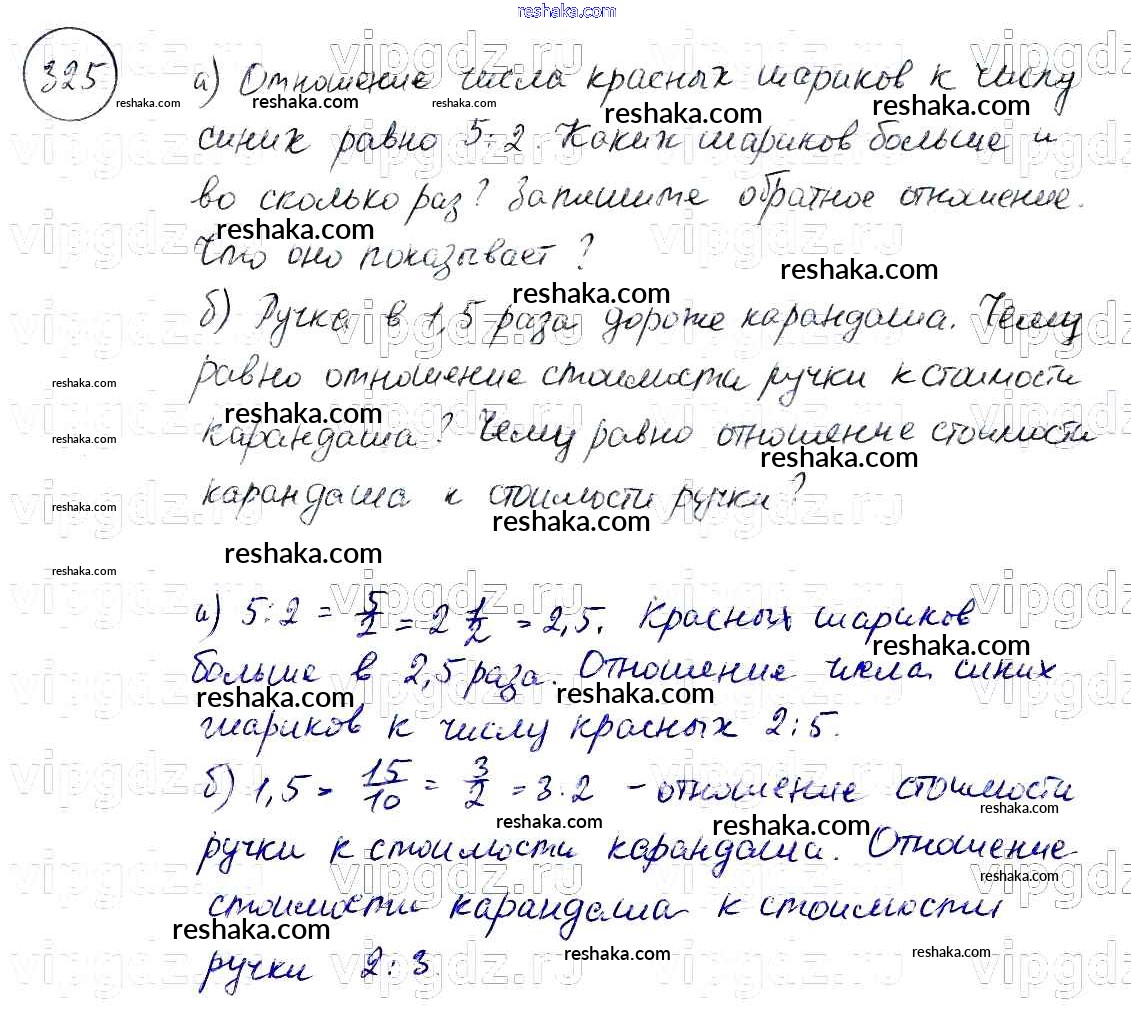 reshaka.com
325
а) Отношение числа красных шариков к числу
синих равно 5:2. Каких шариков больше и
во сколько раз? Запишите обратное отношение.
Что оно показывает?
б) Ручка в 1,5 раза дороже карандаша. Чему
равно отношение стоимости ручки к стоимости
карандаша? Чему равно отношение стоимости
карандаша к стоимости ручки?
а) 5:2 = 5/2 = 2 1/2 = 2,5. Красных шариков
больше в 2,5 раза. Отношение числа синих
шариков к числу красных 2:5.
б) 1,5 = 15/10 = 3/2 = 3:2 – отношение стоимости
ручки к стоимости карандаша. Отношение
стоимости карандаша к стоимости
ручки 2:3.